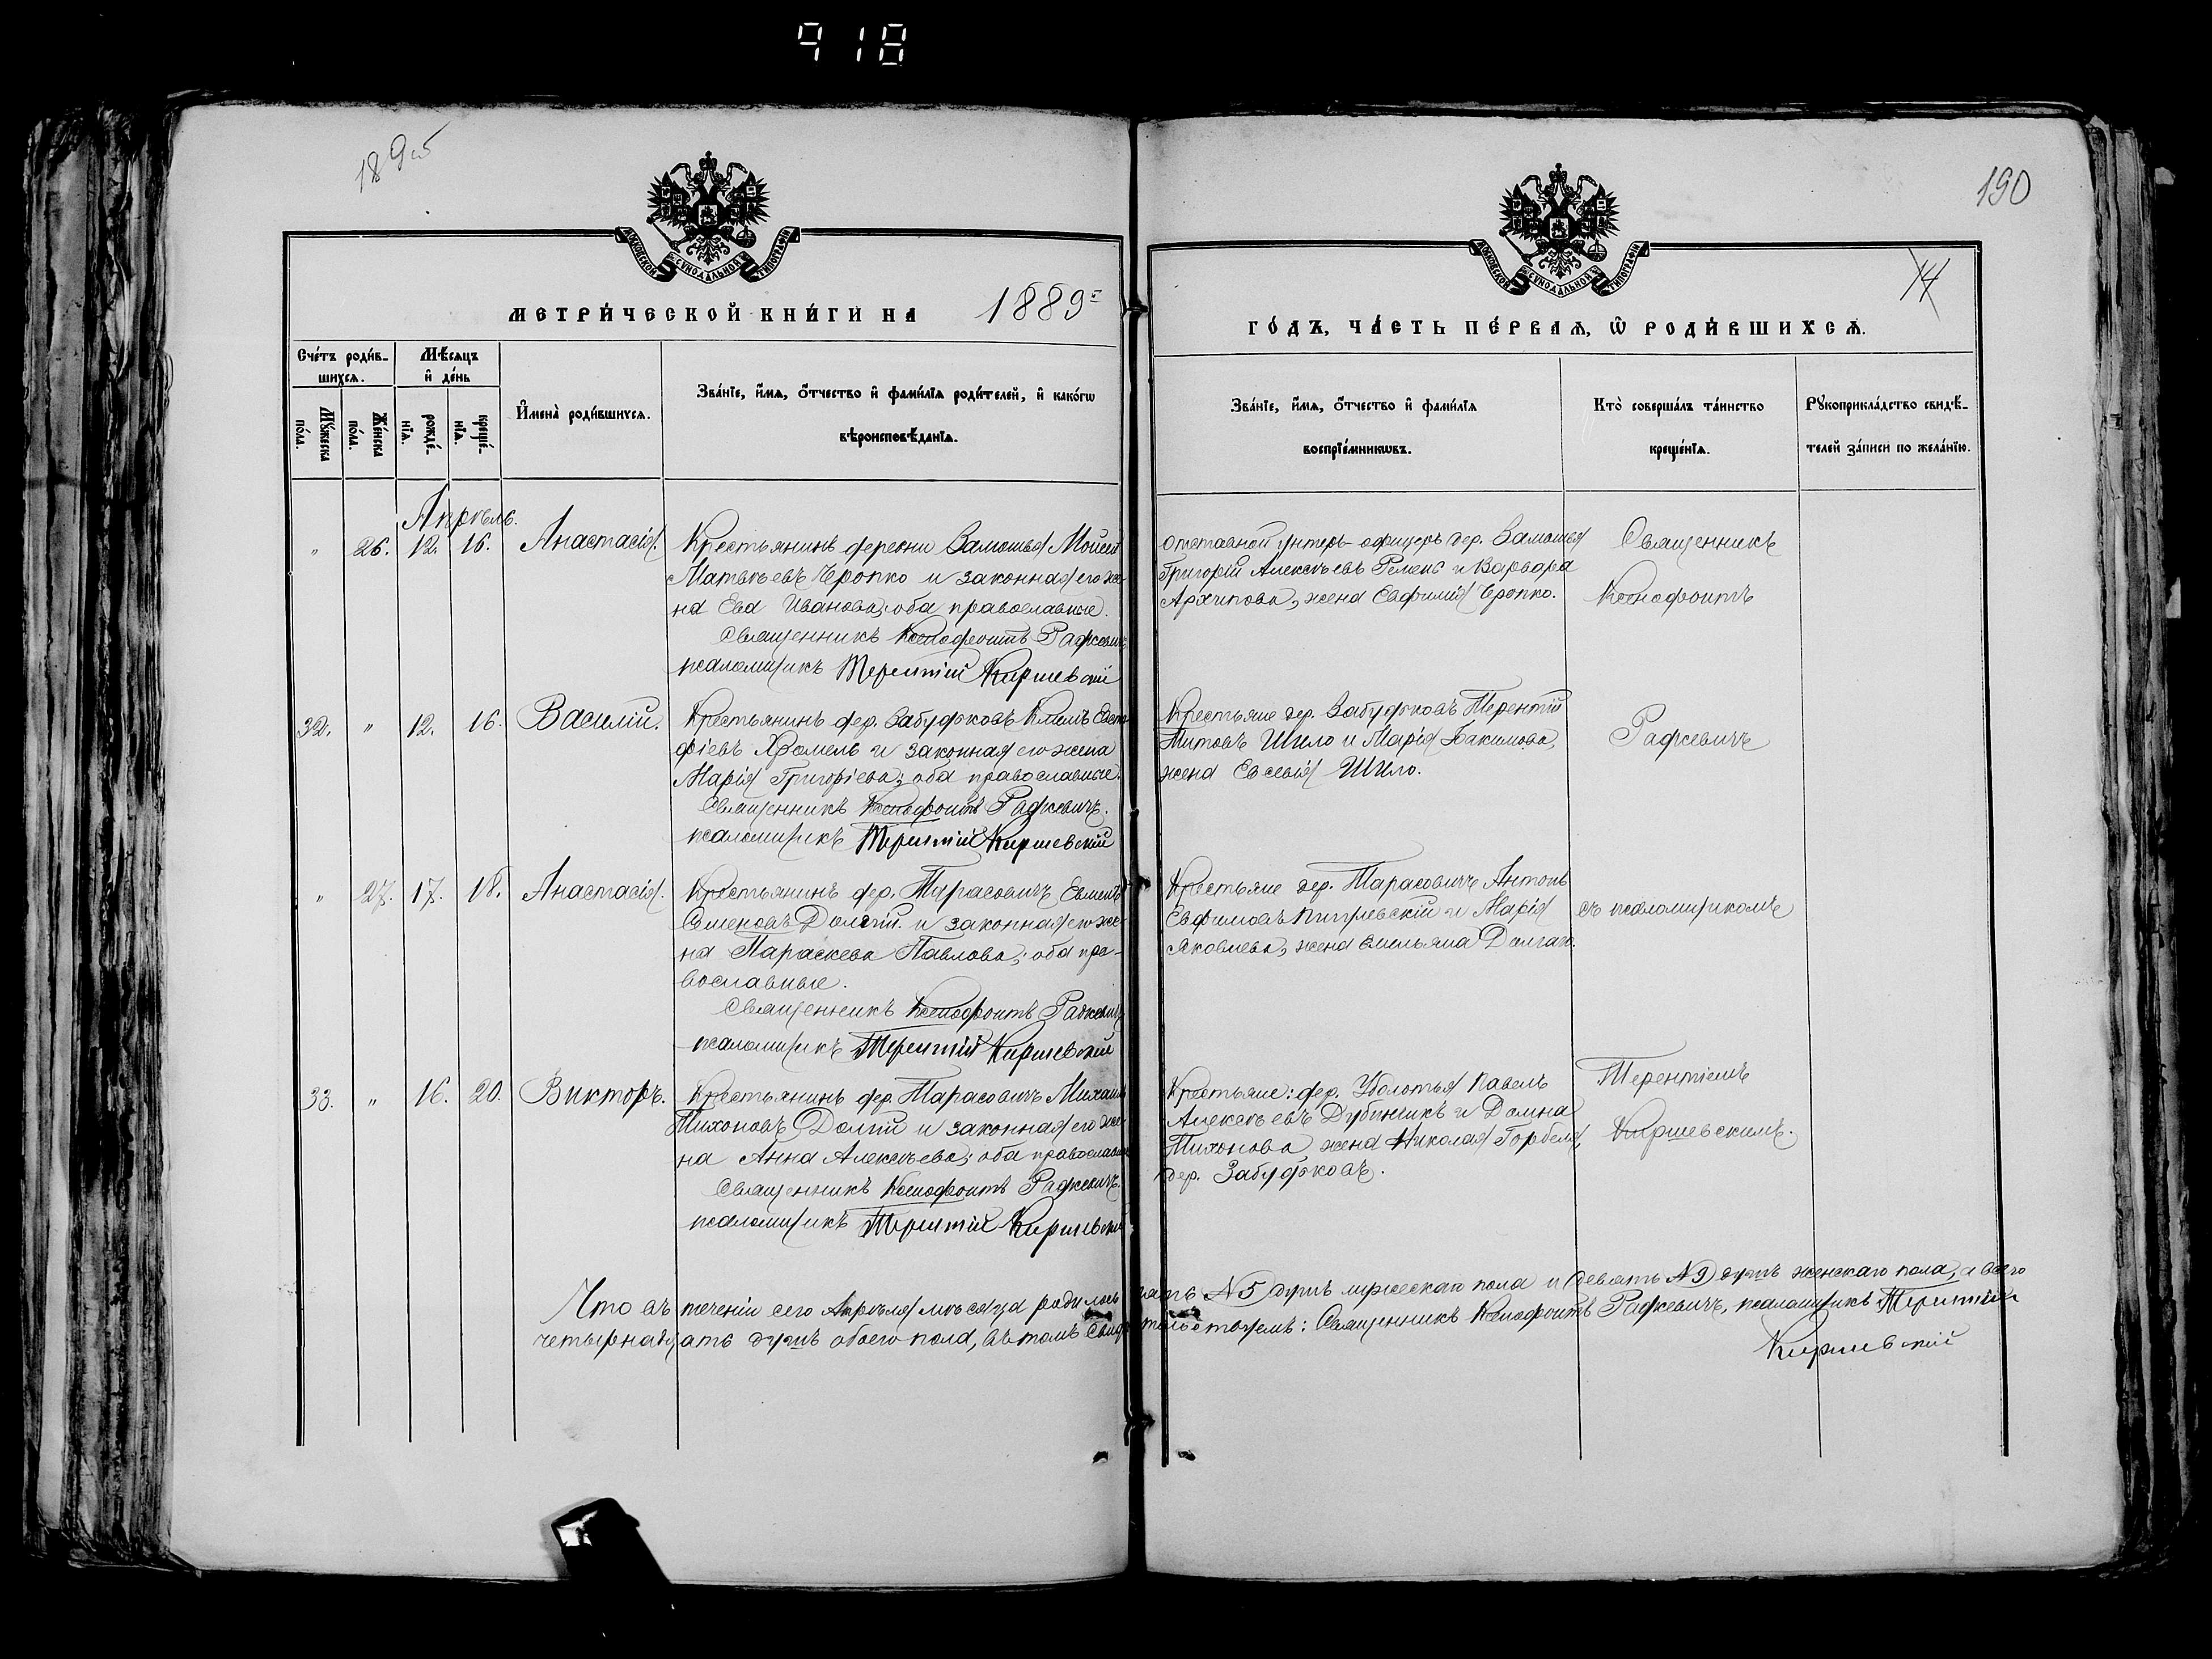 918
189об
190
14
МОСКОВСКОЙ СѴНОДАЛЬНОЙ ТИПОГРАФІИ
МОСКОВСКОЙ СѴНОДАЛЬНОЙ ТИПОГРАФІИ
МЕТРИ́ЧЕСКОЙ КНИ́ГИ НА 1889г
ГО́ДЪ, ЧА́СТЬ ПЕ́РВАЯ, Ѡ РОДИ́ВШИХСЯ.
Сче́тъ роди́в-
шихся.
Мѣ́сяцъ
и де́нь
Мꙋ́жеска
по́ла.
Же́нска
по́ла.
рожде́-
нїя.
креще́-
нїя.
Имена̀ роди́вшихся.
Зва́нїе, и́мя, о́тчество и фами́лїя роди́телей, и како́гѡ
вѣроисповѣ́данїя.
Зва́нїе, и́мя, о́тчество и фами́лїя
воспрїе́мникѡвъ.
Кто̀ соверша́лъ та́инство
креще́нїя.
Рꙋкоприкла́дство свидѣ́-
телей за́писи по жела́нїю.
Апрѣль.
" 26. 12. 16. Анастасія.
Крестьянинъ деревни Замошья Моисей
Матвѣевъ Чропко и законная его же-
на Ева Иванова; оба православные.
Священникъ Ксенофонтъ Радкевичъ
псаломщикъ Терентій Киршевскій
отставной унтеръ-офицеръ дер. Замошья
Григорій Алексѣевъ Ремень и Варвара
Архипова, жена Евфимія Чропко.
Священникъ
Ксенофонтъ
32. " 12. 16. Василій.
Крестьянинъ дер. Забудьковъ Климъ Евста-
фіевъ Хромель и законная его жена
Марія Григорьева; оба православные.
Священникъ Ксенофонтъ Радкевичъ.
псаломщикъ Терентій Киршевскій
Крестьяне дер. Забудьковъ Терентій
Титовъ Шило и Марія
жена Евсевія Шило.
Радкевичъ
" 27. 17. 18. Анастасія.
Крестьянинъ дер. Тарасовичъ
Семеновъ Долгій и законная его же-
на Параскева Павлова; оба пра-
вославные.
Священникъ Ксенофонтъ Радкевичъ
псаломщикъ Терентій Киршевскій
Крестьяне дер. Тарасовичъ Антонъ
Евфимовъ и Марія
Яковлева, жена Емельяна Долгаго.
съ псаломщикомъ
33. " 16. 20. Викторъ.
Крестьянинъ дер. Тарасовичъ Михаилъ
Тихоновъ Долгій и законная его же-
на Анна Алексѣева; оба православные
Священникъ Ксенофонтъ Радкевичъ.
псаломщикъ Терентій Киршевскій
Крестьяне: дер. Уболотья Павелъ
Алексѣевъ Дубинчикъ и Домна
Тихонова жена Николая Горбеля,
дер. Забудьковъ.
Терентіемъ
Киршевскимъ.
Что въ теченіи сего Апрѣля мѣсяца родилось пять №5 душъ мужескаго пола и девять №9 душъ женскаго пола, а всего
четырнадцать душъ обоего пола, въ томъ свидѣтельствуемъ: Священникъ Ксенофонтъ Радкевичъ, псаломщикъ Терентій
Киршевскій